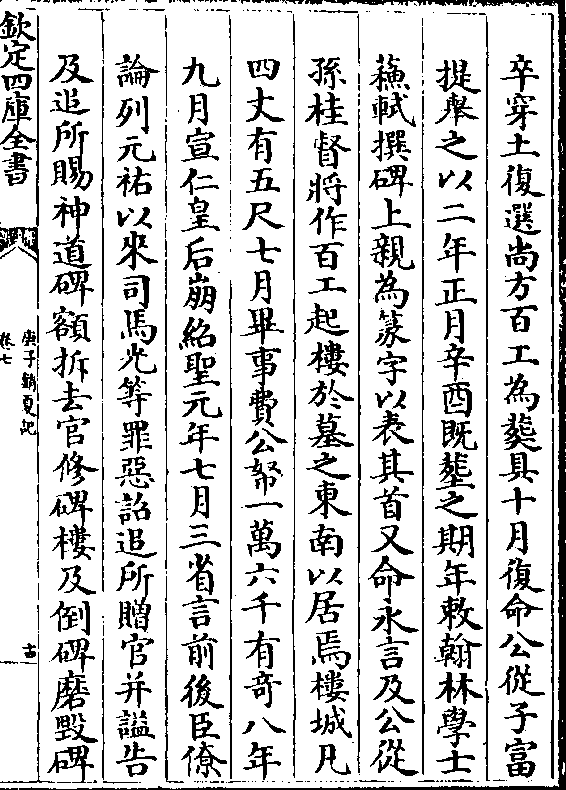 卒穿土復選尚方百工為𦵏具十月復命公從子富
提舉之以二年正月辛酉既塟之期年敕翰林學士
蘓軾撰碑上親為篆字以表其首又命永言及公從
孫桂督將作百工起樓於墓之東南以居焉樓城凡
四丈有五尺七月畢事費公帑一萬六千有奇八年
九月宣仁皇后崩紹聖元年七月三省言前後臣僚
論列元祐以來司馬光等罪惡詔追所贈官并謚告
及追所賜神道碑額拆去官修碑樓及倒碑磨毀碑
欽定四庫全書
庚子銷夏記
卷七
古